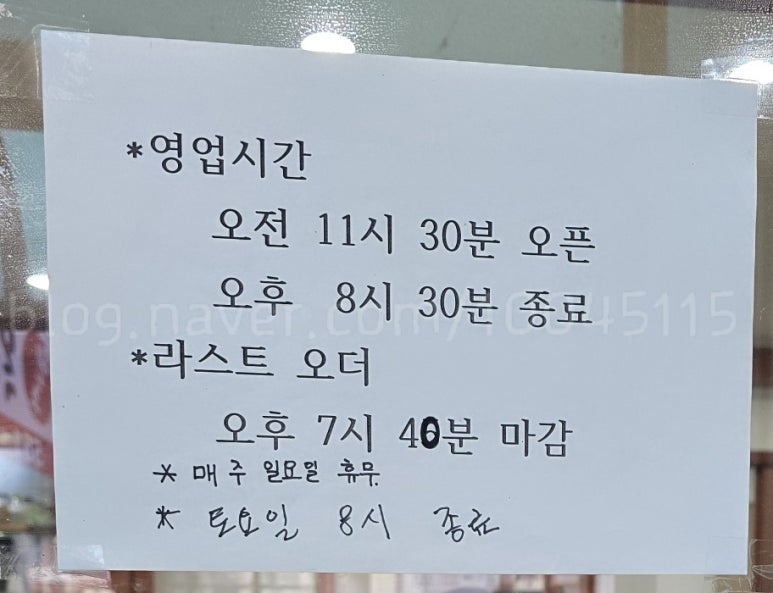 *영업시간
오전 11시 30분 오픈
오후 8시 30분 종료
*라스트 오더
오후 7시 40분 마감
* 매주 일요일 휴무
* 토요일 8시 종료